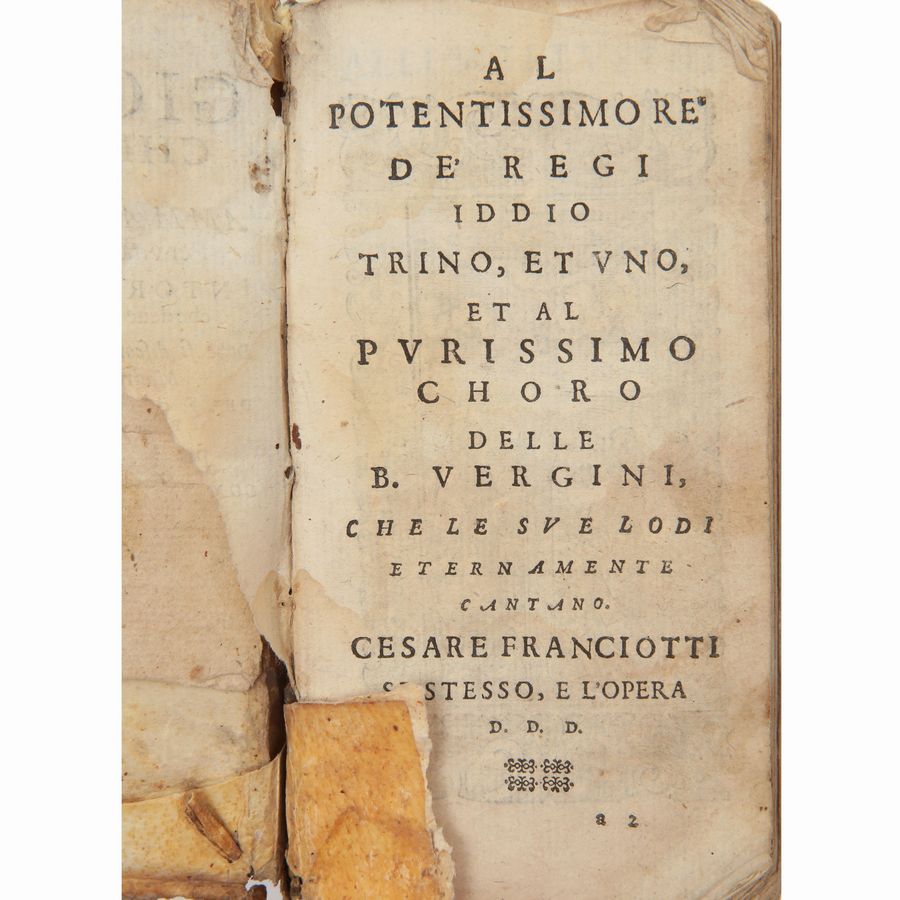 AL
POTENTISSIMO RE'
DE' REGI
IDDIO
TRINO, ET VNO,
ET AL
PVRISSIMO
CHORO
DELLE
B. VERGINI,
CHE LE SVE LODI
ETERNAMENTE
CANTANO.
CESARE FRANCIOTTI
STESSO, E L'OPERA
D. D. D.
a 2